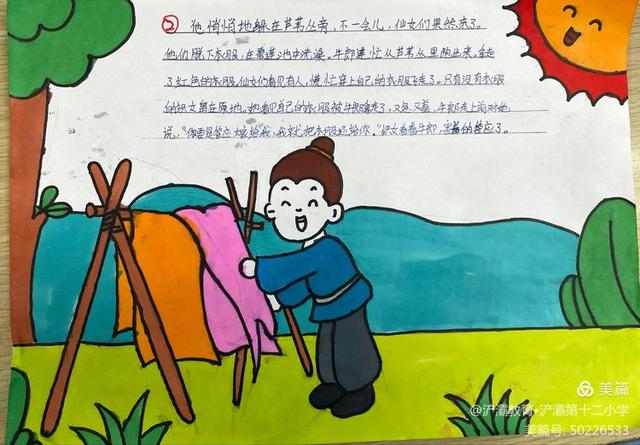 ② 他悄悄地躲在芦苇丛旁，不一会儿，仙女们果然来了。
她们脱下衣服，在莲池中洗澡。牛郎连忙从芦苇丛里跑出来，拿走
了红色的衣服，仙女们看见有人，慌忙穿上自己的衣服飞走了。只有没有衣服
的织女留在原地。她看见自己的衣服被牛郎拿走了，又急又羞，牛郎走上前对她
说："你要是答应嫁给我，我就把衣服还给你。"织女看着牛郎，害羞的答应了。
美篇
@浐灞教育·浐灞第十二小学
美篇号: 50226533